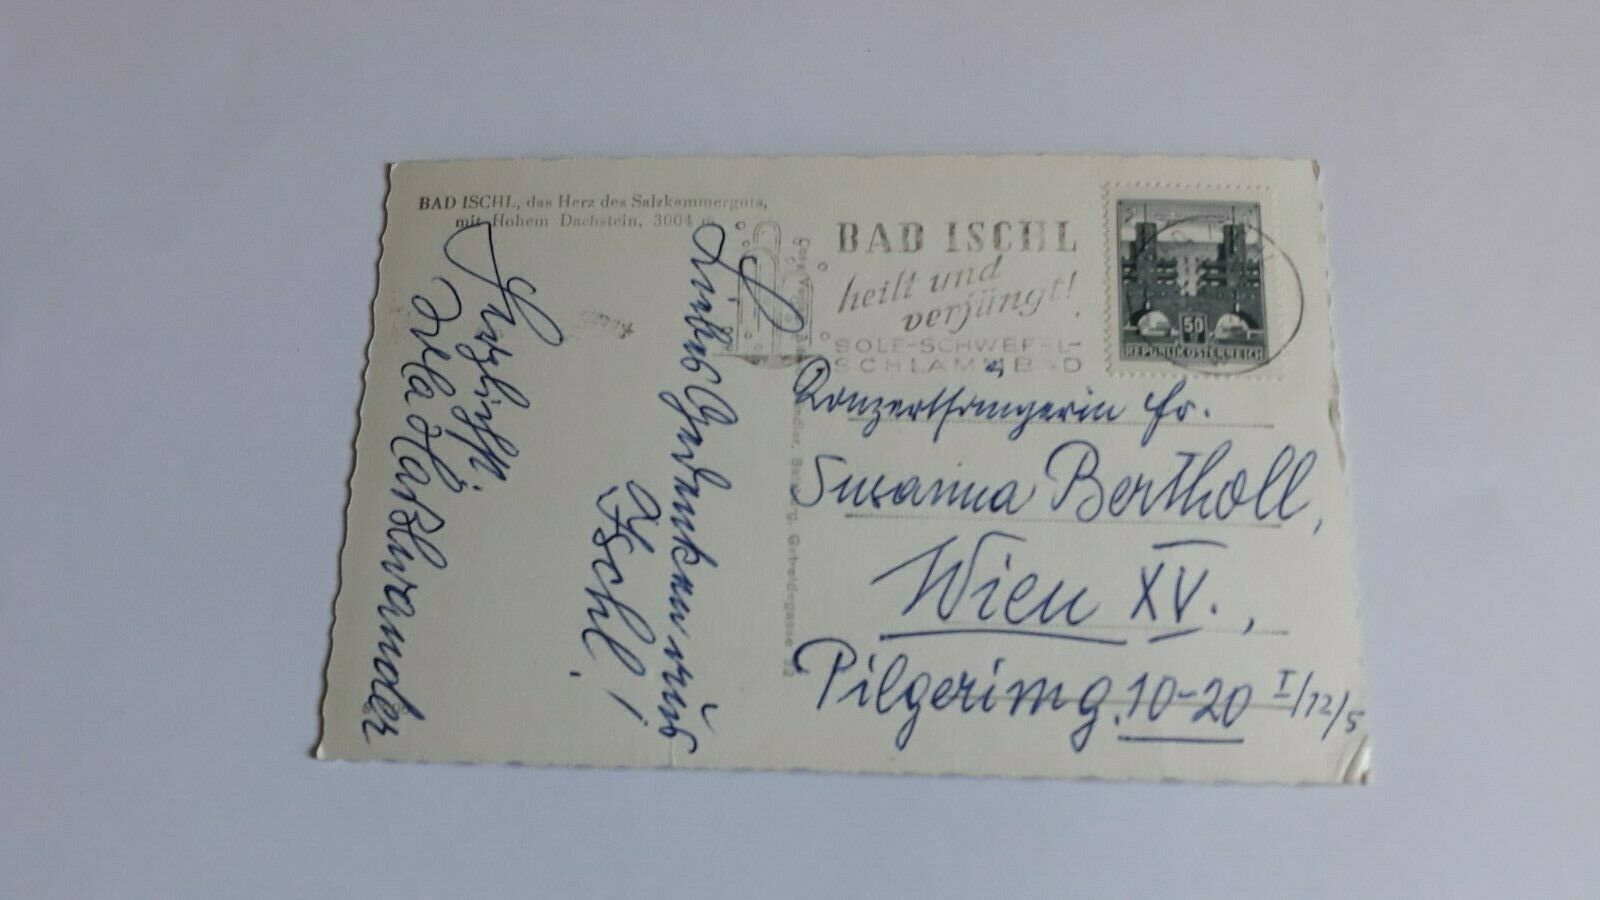 BAD ISCHL, das Herz des Salzkammerguts,
mit Hohem Dachstein, 3004 m
BAD ISCHL
heilt und
verjüngt!
SOLE-SCHWEFEL-
SCHLAMMBAD
50
REPUBLIK ÖSTERREICH
Liebes Gedenken aus
Ischl!
Herzlichst
Hasslwander
Konzertsängerin Fr.
Susanna Bertholl,
Wien XV.,
Pilgerimg. 10-20 I/12/5
Getreidegasse 22